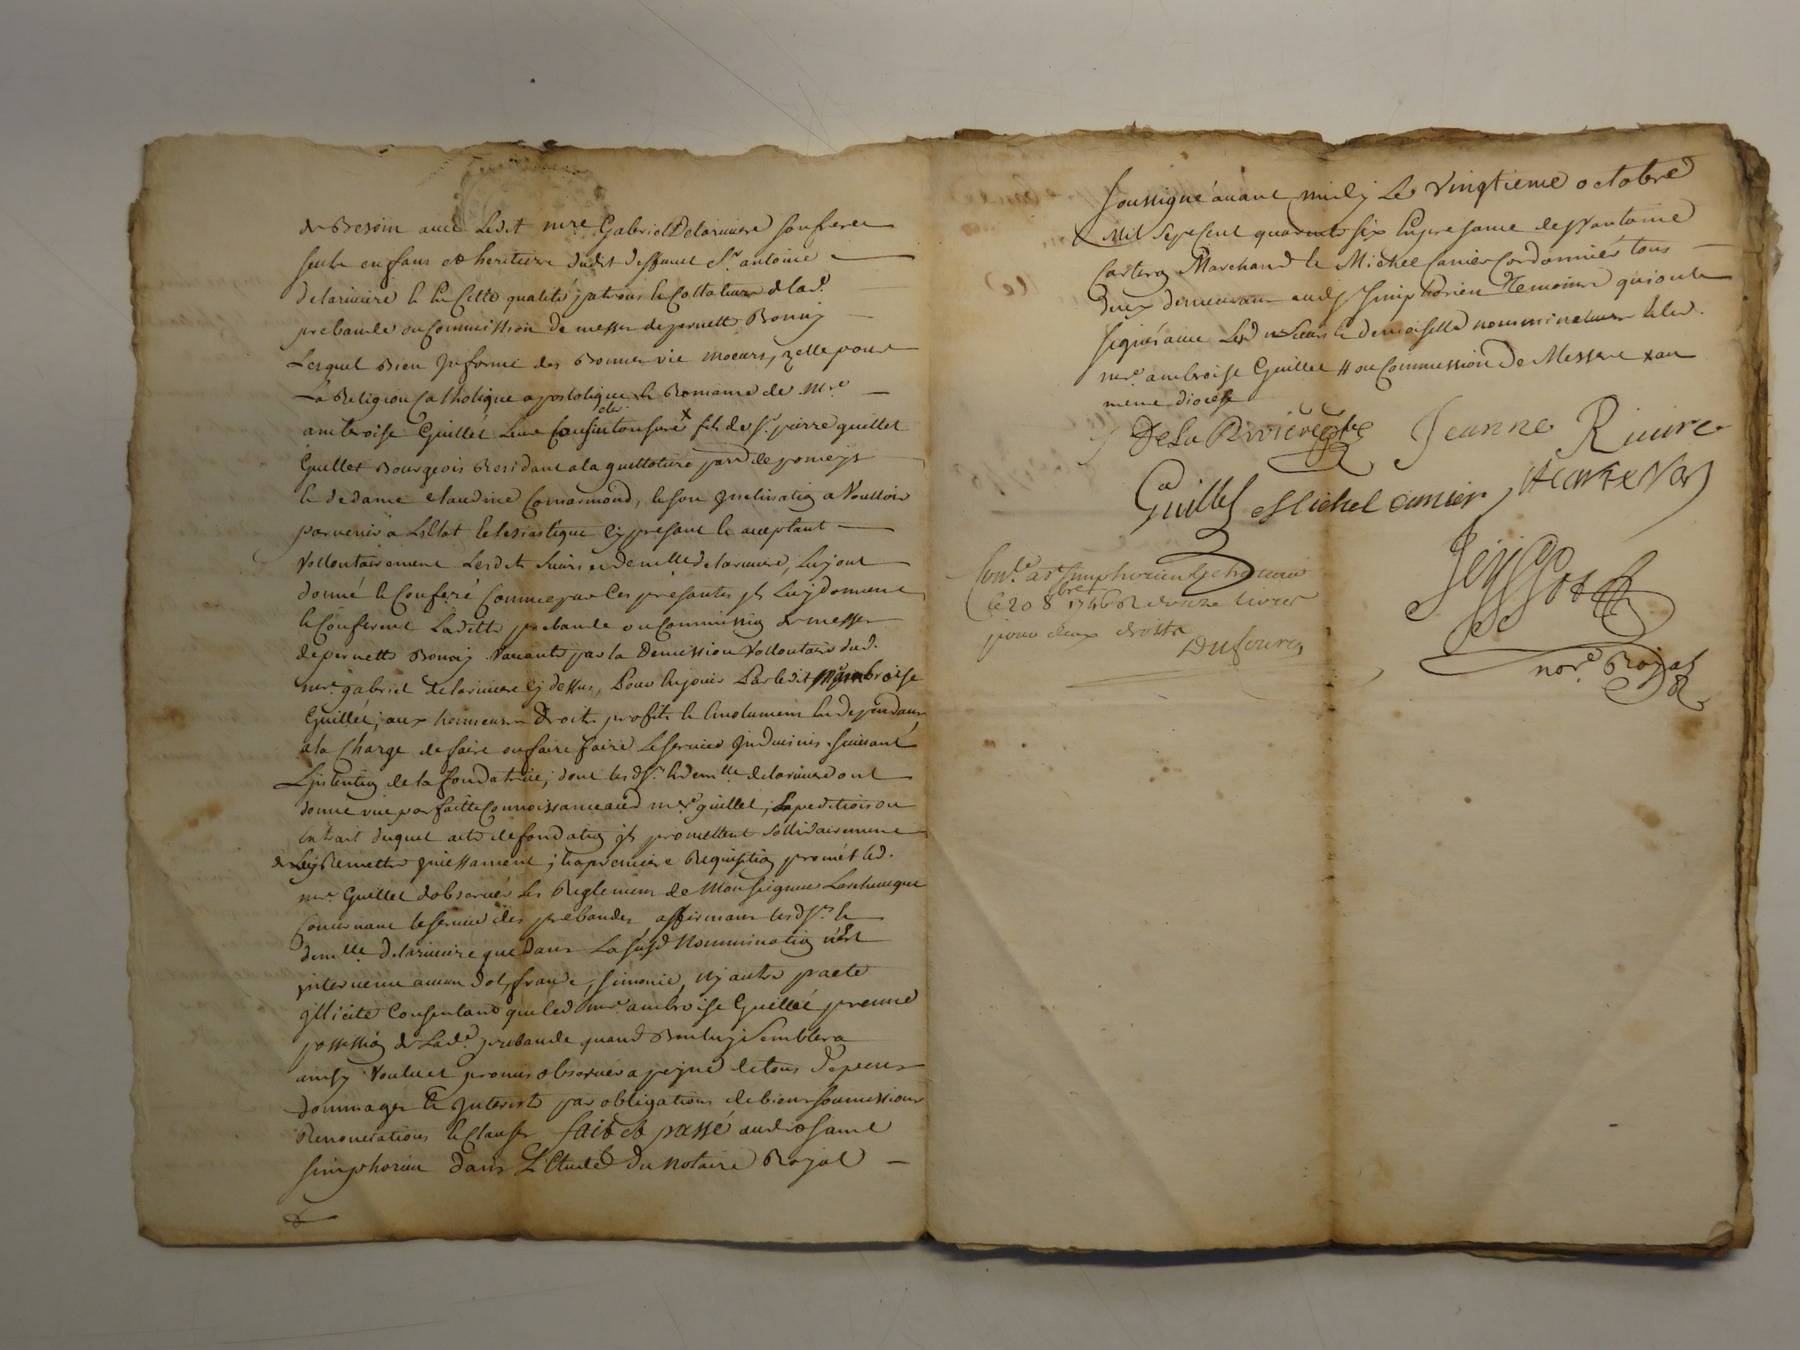 de Besoin avec Ledit mre Gabriel Delariviere son frere
seuls enfans et heritiers dudit deffunct Sr antoine
delariviere & En Cette qualité patrons & Collateurs de lad.e
prebande ou Commission de messes de pernette Bonny
Lesquels Bien Informé des Bonnes vie moeurs, zelle pour
La Religion Catholique apostolique & Romaine de Mre
ambroise Guillet Leur Cousin clerc tonsuré x fils de Sr pierre guillet
Guillet Bourgeois Residant a la guillotiere parr.e de pomeys
& de dame claudine Comarmond, & son Inclination a Voulloir
parvenir a L'Estat Eclesiastique Cy present & acceptant
Vollontairement Lesdits Sieurs et demlle delariviere, Luy ont
donné & Conferé Comme par Ces presantes ils Luy donnent
& Conferent Laditte prebande ou Commission de messes
de pernette Bonny Vacante par la Demission Vollontaire dud.
mre gabriel delariviere Cy dessus, Pour En jouir Par ledit Mre ambroise
Guillet, aux honneurs Droits profits & Emolumens En dependans
a la Charge de faire ou faire faire Le service Indivinis suivant
L'intention de la fondatrice, dont lesd. Srs & demlle delariviere ont
donné une parfaitte Connoissance aud mre guillet, Expedition ou
Extrait duquel acte de fondation ils promettent Sollidairement
de Luy Remettre Incessament, a la premiere Requisition, promet led.
mre Guillet d'observer Les Reglemens de Monseigneur Larcheveque
Concernant le service des prebandes affirmans lesd. Srs &
demlle delariviere que dans La susd Nommination n'Est
intervenu aucun dol, fraude, simonie, Ny autre pacte
illicite Consentant que led mre ambroise Guillet prenne
possession de Lad.e prebande quand Bon luy Semblera
ainsy Voulu et promis observer a peyne de tous Depens
dommages & Interests par obligations de biens soumissions
Renonciations & Clauses fait et passé audit Saint
Simphorien dans L'Etude Du Notaire Royal
Soussigné avant midy Le Vingtieme octobre
Mil Sept Cent quarante six En presance de Sr antoine
Marchand & Michel Canier Cordonnier tous
deux demeurans aud. St Simphorien Temoins qui ont
Signé avec Lesd. Sieurs & demoiselle nomminateurs & led.
mre ambroise Guillet # ou Commission De Messes x au
meme diocese
DeLa Rivière Jeanne Riuire
Guillet Michel canier
Conlé a St Simphorien le chateau
le 20 8bre 1746 R douze livres
pour deux droits
Dufour
nore Royal